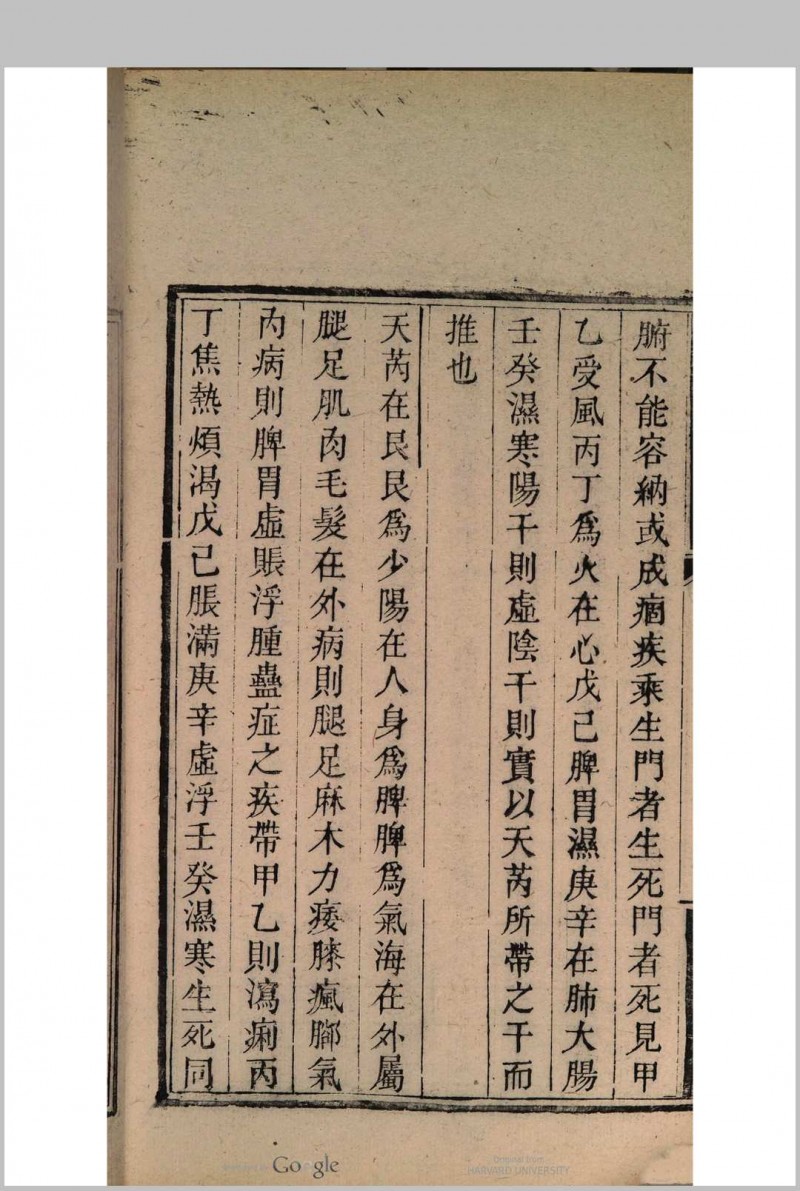 腑不能容納或成痼疾乘生門者生死門者死見甲
乙受風丙丁爲火在心戊己脾胃濕庚辛在肺大腸
壬癸濕寒陽干則虛陰干則實以天芮所帶之干而
推也
天芮在艮艮爲少陽在人身爲脾脾爲氣海在外屬
腿足肌肉毛髮在外病則腿足麻木力痿膝瘋腳氣
內病則脾胃虛賬浮腫蠱症之疾帶甲乙則瀉痢丙
丁焦熱煩渴戊己脹滿庚辛虛浮壬癸濕寒生死同
Google
Original from
HARVARD UNIVERSITY